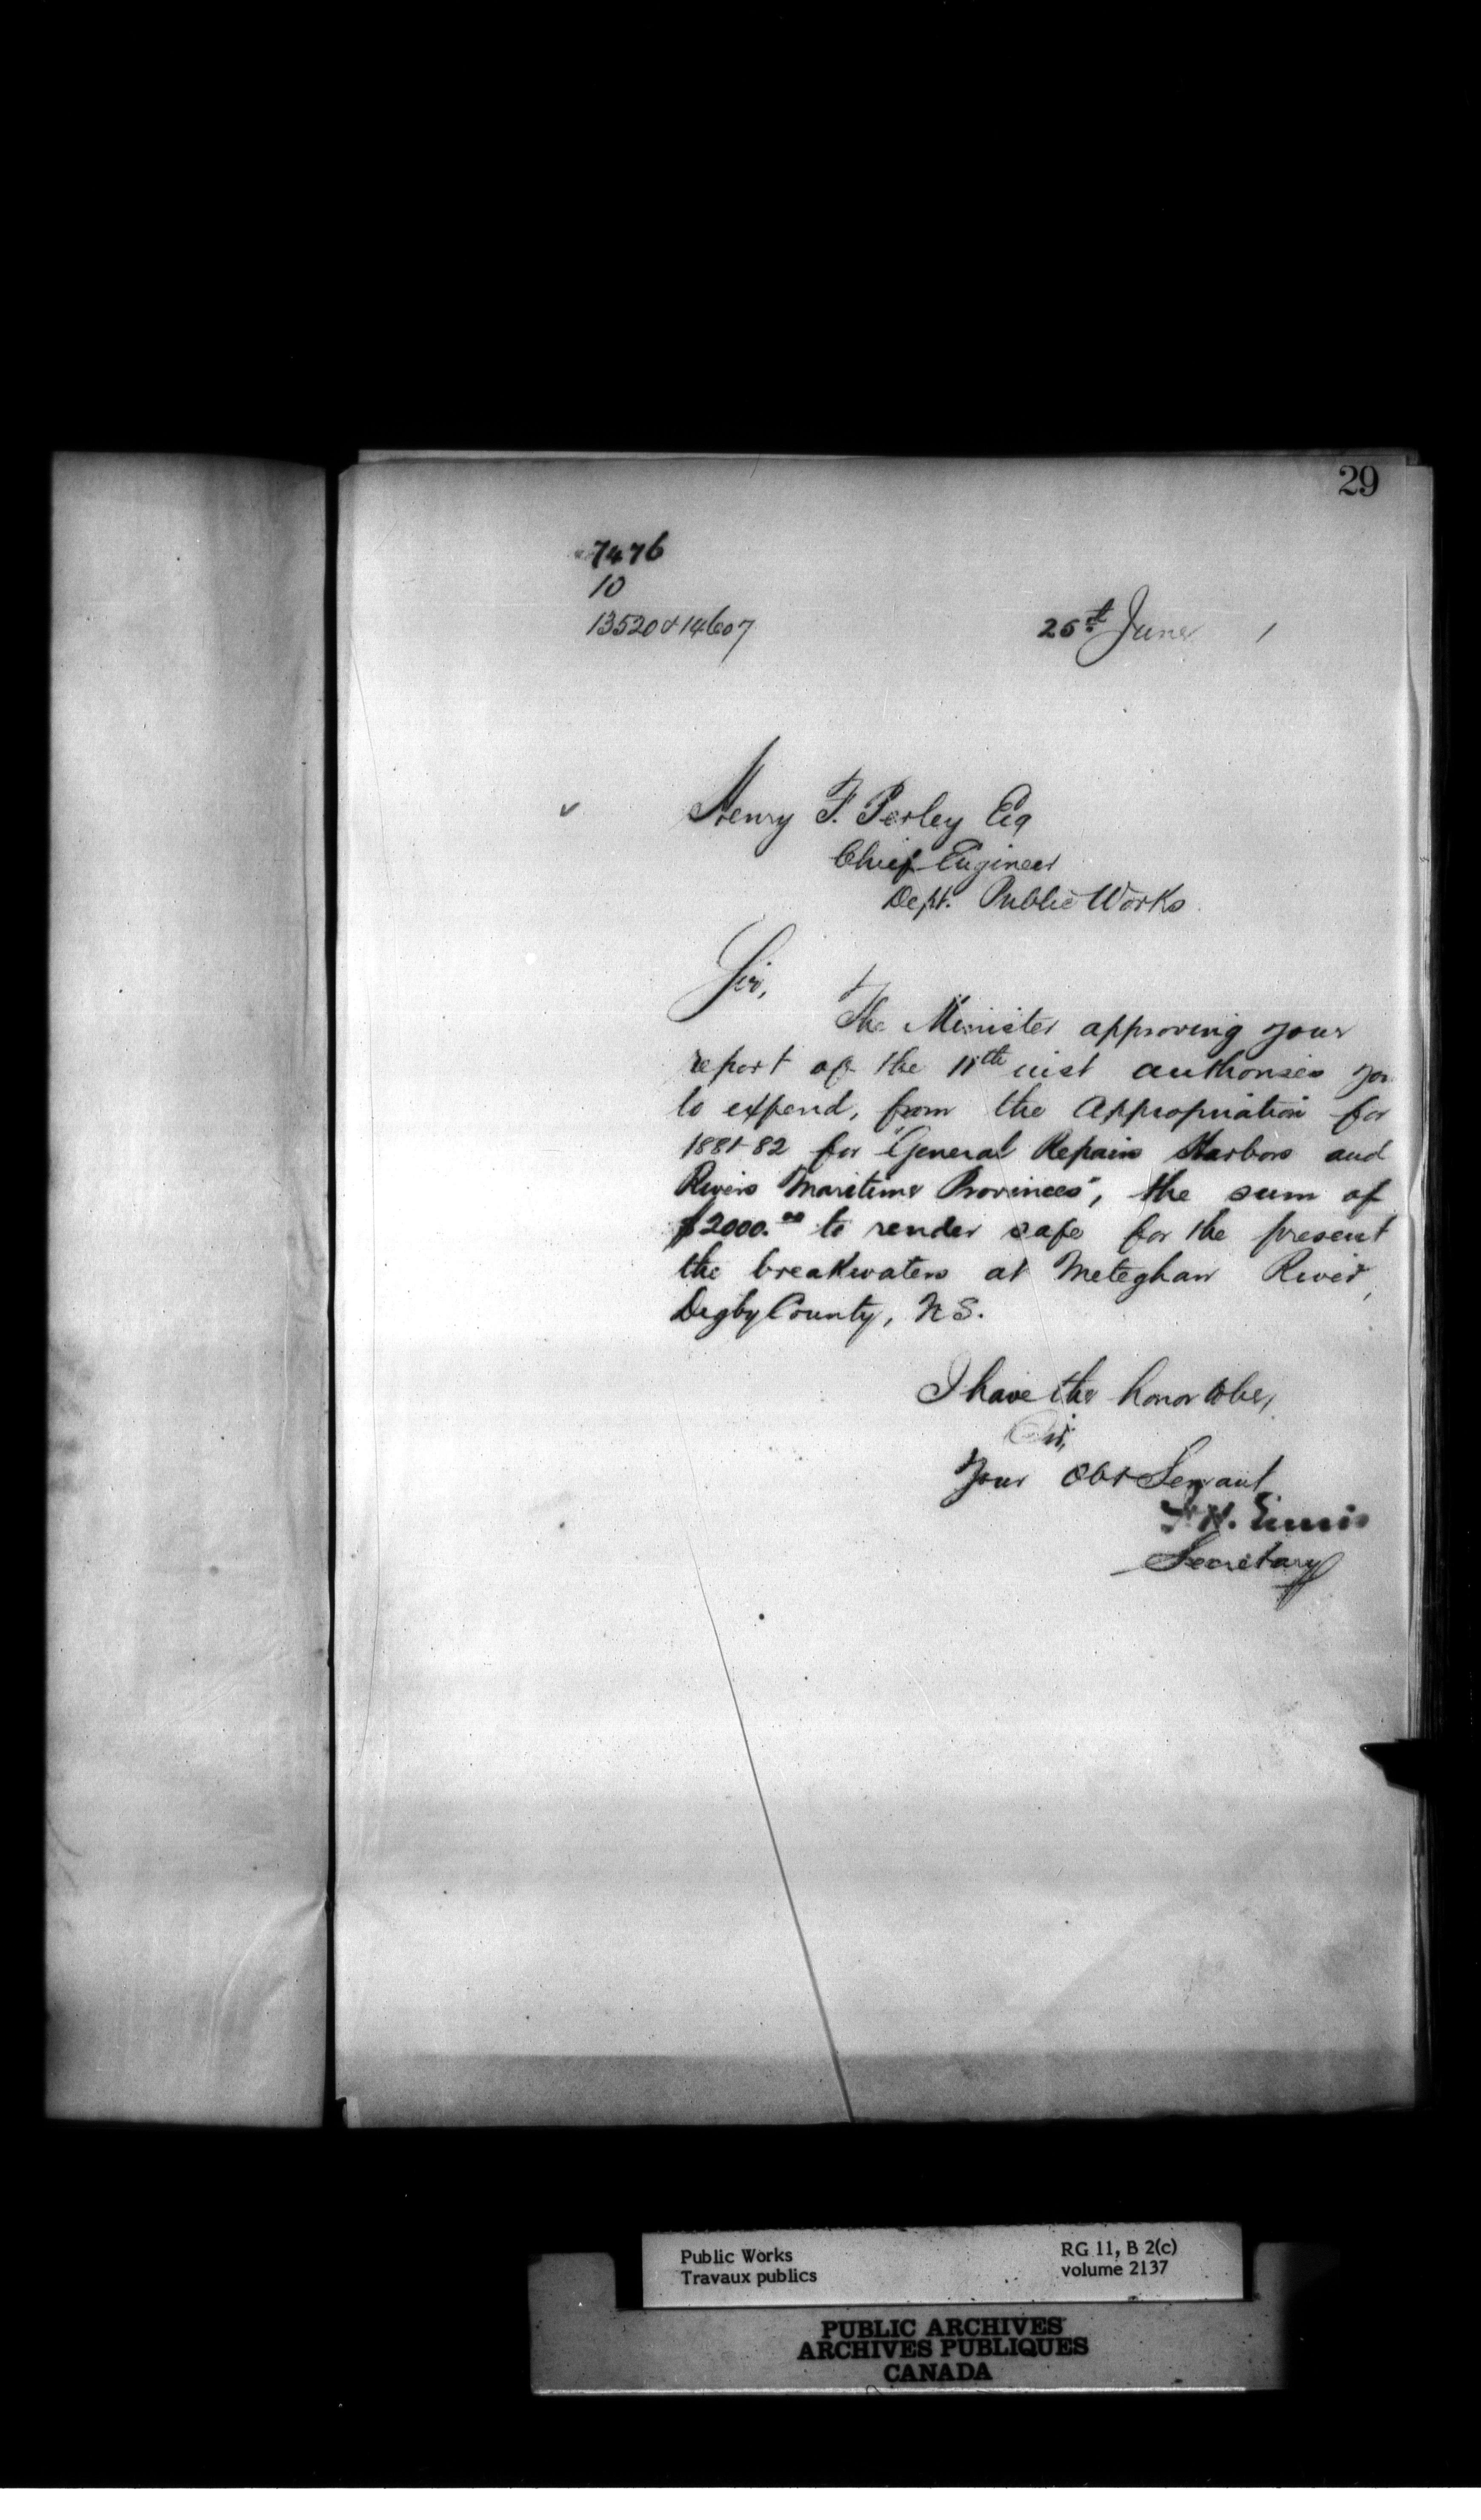 29
7476
10
13520 & 14607
25th June 1
Henry F. Perley Eq
Chief Engineer
Dept. Public Works.
Sir,
The Minister approving your
report of the 11th inst authorises you
to expend, from the Appropriation for
1881-82 for "General Repairs Harbors and
Rivers Maritime Provinces", the sum of
$2000.00 to render safe for the present
the breakwaters at Meteghan River,
Digby County, N.S.
I have the honor to be,
Sir,
Your Obt Servant
F. H. Ennis
Secretary
Public Works
Travaux publics
RG 11, B 2(c)
volume 2137
PUBLIC ARCHIVES
ARCHIVES PUBLIQUES
CANADA